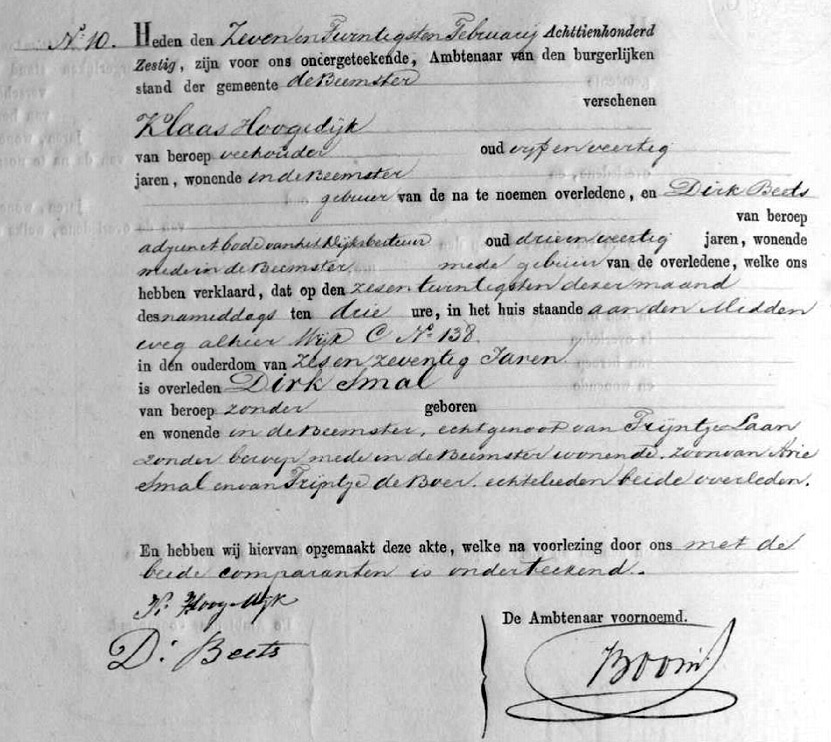 No. 10. Heden den Zeven en Twintigsten Februarij Achttienhonderd
Zestig, zijn voor ons ondergeteekende, Ambtenaar van den burgerlijken
stand der gemeente de Beemster
verschenen
Klaas Hoogedijk
van beroep veehouder oud vijf en veertig
jaren, wonende in de Beemster
gebuur van de na te noemen overledene, en Dirk Beets
van beroep
adjunct bode van het Dijksbestuur oud drie en veertig jaren, wonende
mede in de Beemster mede gebuur van de overledene, welke ons
hebben verklaard, dat op den zes en twintigsten dezer maand
des namiddags ten drie ure, in het huis staande aan den Midden
weg alhier Wijk C No. 138
in den ouderdom van zes en zeventig Jaren
is overleden Dirk Smal
van beroep zonder geboren
en wonende in de Beemster, echtgenoot van Trijntje Laan
zonder beroep mede in de Beemster wonende. zoon van Arie
Smal en van Trijntje de Boer. echtelieden beide overleden.
En hebben wij hiervan opgemaakt deze akte, welke na voorlezing door ons met de
beide comparanten is onderteekend.
K. Hoogedijk
De Ambtenaar voornoemd.
D. Beets
Boon